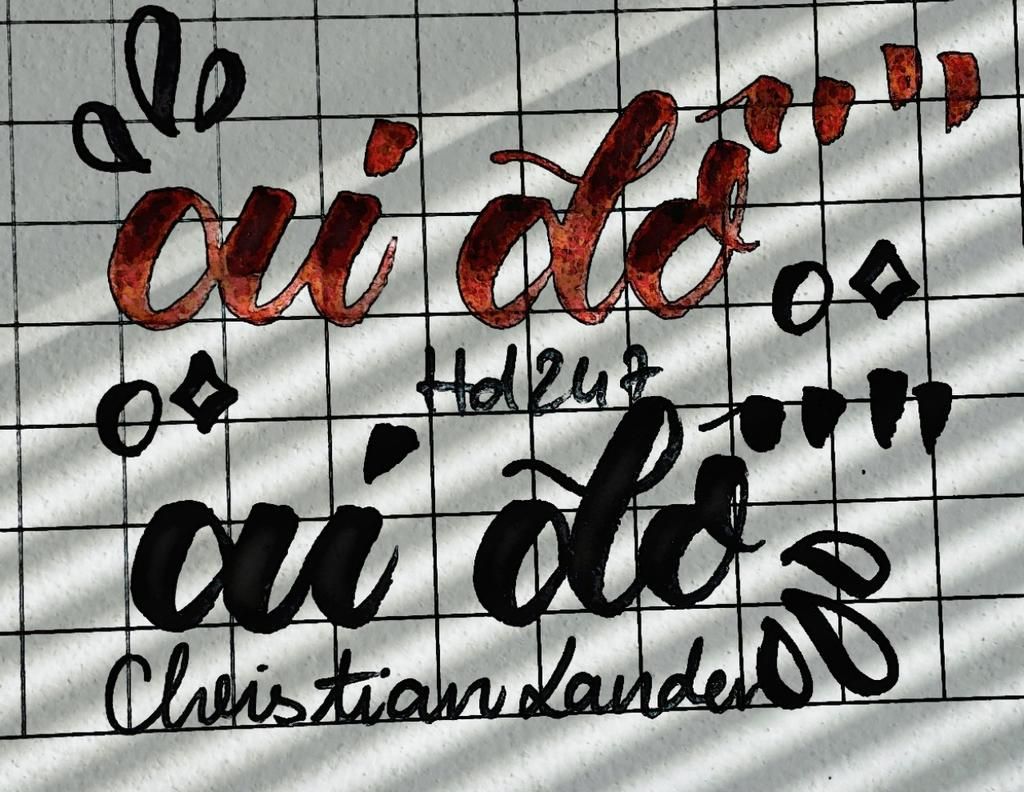 ai do''"
Hd247
ai do''"
Christian Lander